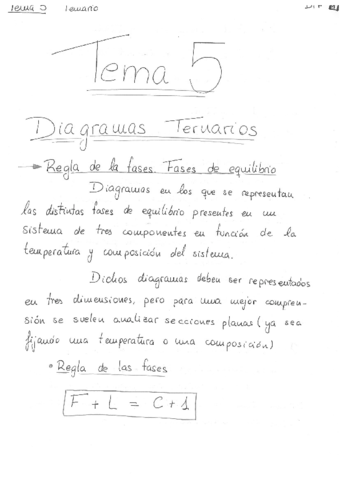 Tema 5 Temario
Tema 5
Diagramas Ternarios
→ Regla de la fases. Fases de equilibrio
Diagramas en los que se representan
las distintas fases de equilibrio presentes en un
sistema de tres componentes en función de la
temperatura y composición del sistema.
Dichos diagramas deben ser representados
en tres dimensiones, pero para una mejor compren-
sión se suelen analizar secciones planas (ya sea
fijando una temperatura o una composición)
• Regla de las fases
F + L = C + 1